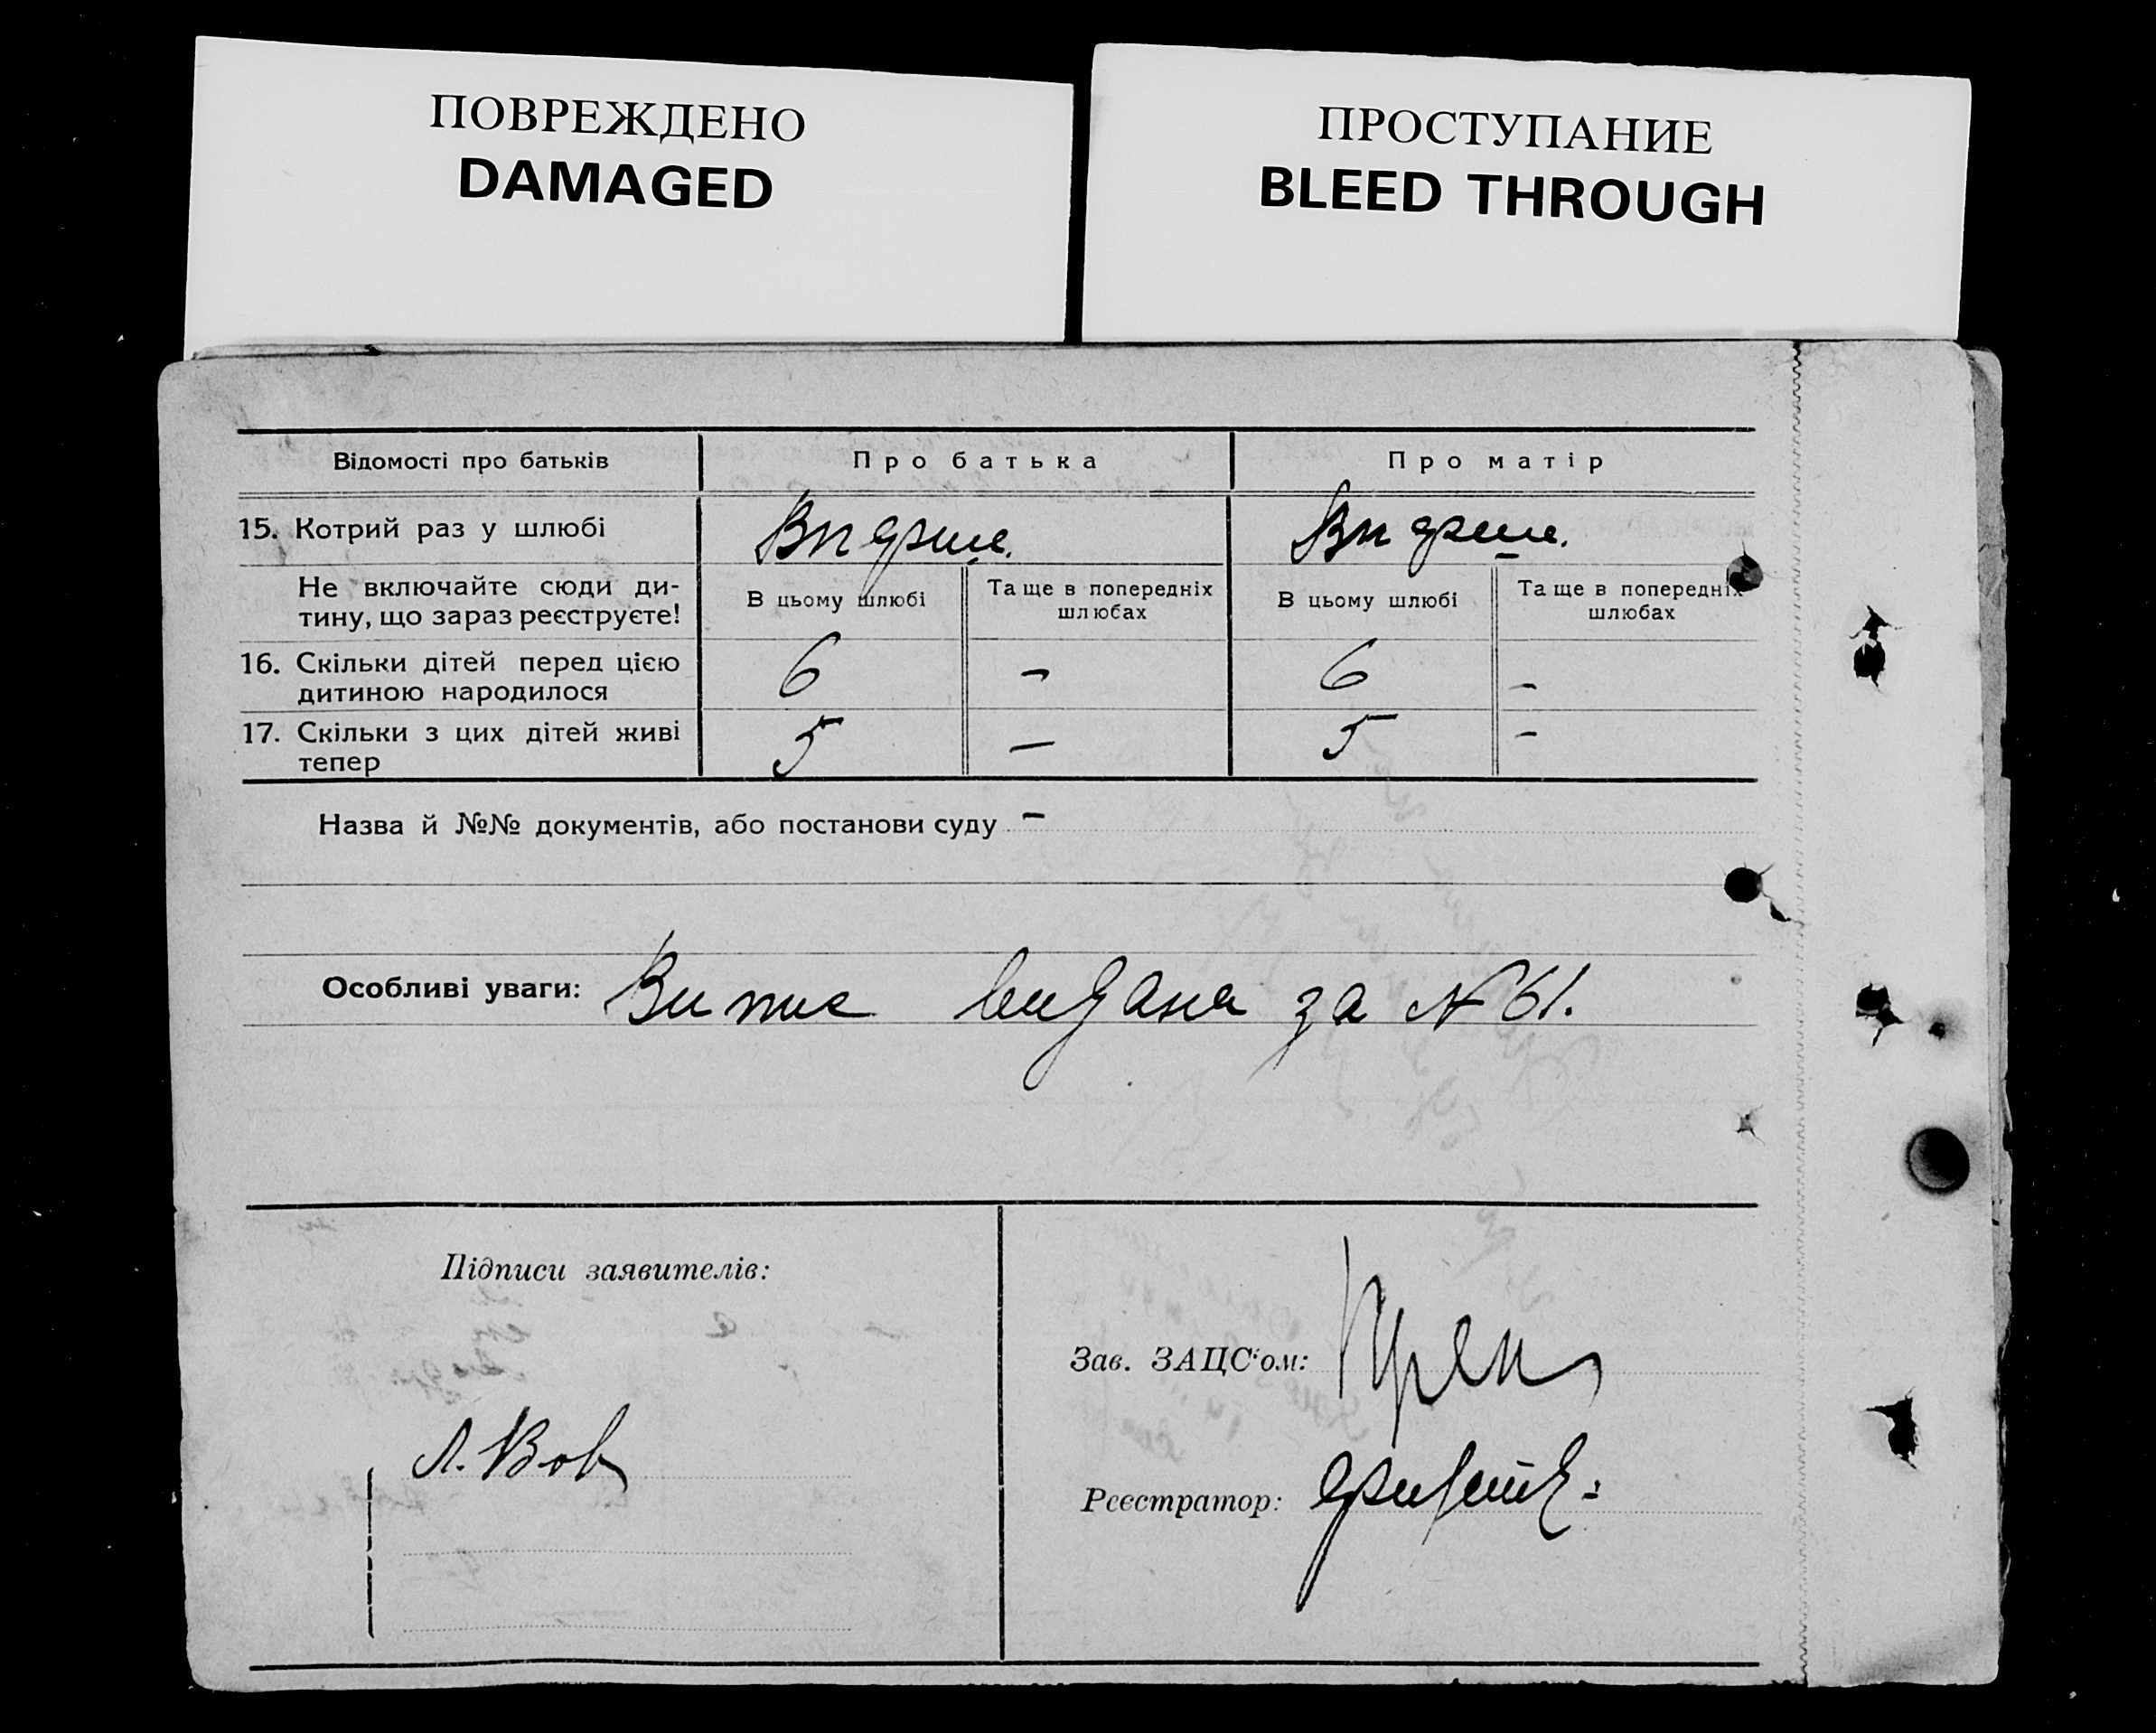 ПОВРЕЖДЕНО
DAMAGED
ПРОСТУПАНИЕ
BLEED THROUGH
Відомості про батьків
Про батька
Про матір
15. Котрий раз у шлюбі
Вперше.
Вперше.
Не включайте сюди ди-
тину, що зараз реєструєте!
В цьому шлюбі
Та ще в попередніх
шлюбах
В цьому шлюбі
Та ще в попередніх
шлюбах
16. Скільки дітей перед цією
дитиною народилося
6
–
6
–
17. Скільки з цих дітей живі
тепер
5
–
5
–
Назва й №№ документів, або постанови суду –
Особливі уваги: Випис видана за № 61.
Підписи заявителів:
Л. Вов
Зав. ЗАЦС'ом:
Реєстратор: